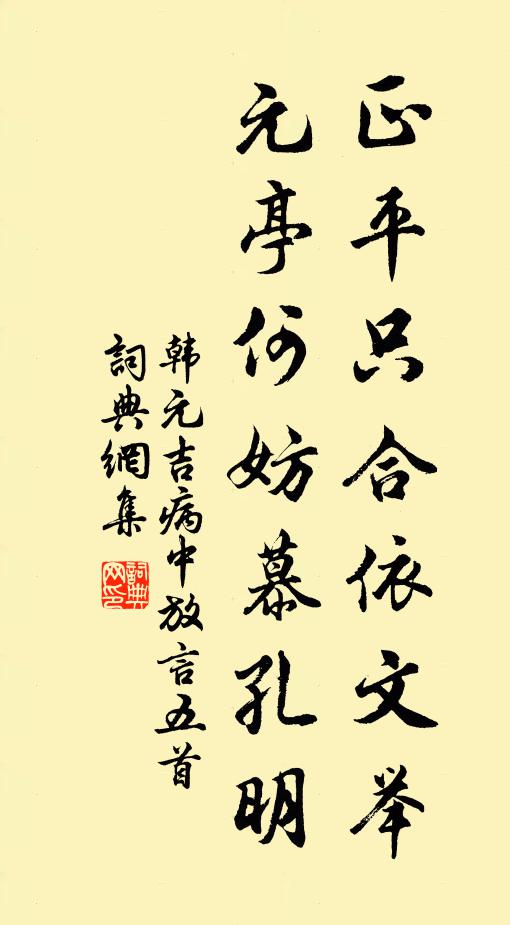 正平只合依文举
元亭何妨慕孔明
韩元吉病中放言五首
詞典網集
詞典
网印